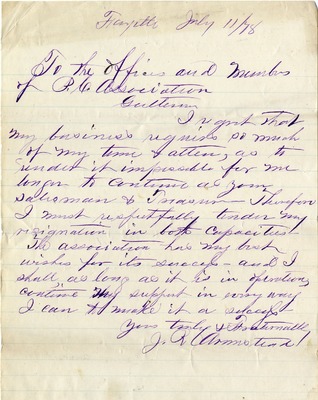 Fayette July 11/78
To the Offices and Members
of P. C. Association
Gentlemen
I regret that
my business requires so much
of my time & attention as to
render it impossible for me
longer to continue as your
Salesman & Treasurer Therefore
I must respectfully tender my
resignation in both capacities
The association has my best
wishes for its success - and I
shall as long as it is in operation
continue my support in every way
I can to make it a success
Yours truly & Fraternally
J. R. Armstead